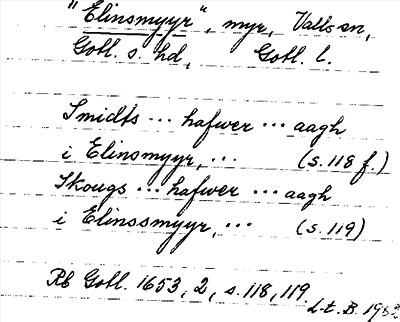 "Elinsmyyr", myr, Valls sn,
Gotl. s. hd, Gotl. l.
Smidts ... hafwer ... aagh
i Elinsmyyr, ... (s. 118 f.)
Skougs ... hafwer ... aagh
i Elinssmyyr, ... (s. 119)
Rb Gotl. 1653, 2, s. 118, 119
L.t. B. 1983